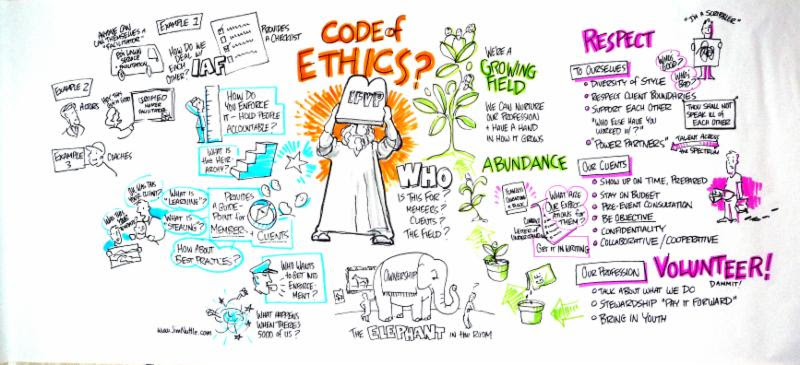 EXAMPLE 1
ANYONE CAN
CALL THEMSELVES A
"FACILITATOR"
LAWN
SERVICE
+ FACILITATION
HOW DO WE
DEAL w/
EACH
OTHER?
IAF
PROVIDES
A CHECKLIST
EXAMPLE 2
ACTORS
CERTIFIED
MASTER
FACILITATOR
EXAMPLE
3
COACHES
HOW DO
YOU ENFORCE
IT - HOLD PEOPLE
ACCOUNTABLE?
WHAT IS
THE HEIR-
ARCHY?
WHAT IS
"LEARNING"?
WHAT IS
"STEALING"?
HOW ABOUT
BEST PRACTICES?
PROVIDES
A GUIDE-
POINT for
MEMBERS +
CLIENTS
WHO WANTS
TO GET INTO
ENFORCE-
MENT?
WHAT HAPPENS
WHEN THERE'S
5000 OF US?
www.JimNuttle.com
CODE of
ETHICS?
IFVP
WHO
IS THIS FOR?
MEMBERS?
CLIENTS?
THE FIELD?
OWNERSHIP
THE ELEPHANT IN THE ROOM
WE'RE A
GROWING
FIELD
WE CAN NURTURE
OUR PROFESSION
+ HAVE A HAND
IN HOW IT GROWS
ABUNDANCE
WHAT ARE
OUR EXPECT-
ATIONS FOR
THEM?
LETTER of
UNDERSTANDING
GET IT IN WRITING
RESPECT
"I'M A SCRIBBLER"
TO OURSELVES
WHO'S
GOOD?
WHO'S
BAD?
DIVERSITY OF STYLE
RESPECT CLIENT BOUNDARIES
SUPPORT EACH OTHER
"WHO ELSE HAVE YOU
WORKED w/?"
"POWER PARTNERS"
THOU SHALL NOT
SPEAK ILL of
EACH OTHER
TALENT ACROSS
THE SPECTRUM
OUR CLIENTS
SHOW UP ON TIME, PREPARED
STAY ON BUDGET
PRE-EVENT CONSULTATION
BE OBJECTIVE
CONFIDENTIALITY
COLLABORATIVE/COOPERATIVE
OUR PROFESSION
VOLUNTEER!
DAMMIT!
TALK ABOUT WHAT WE DO
STEWARDSHIP "PAY IT FORWARD"
BRING IN YOUTH